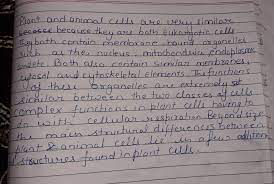 Plant and animal cells are very similar
because they are both eukaryotic cells
They both contain membrane bound organelles
such as the nucleus, mitochondria, endoplasmic
Both also contain similar membranes,
cytosol and cytoskeletal elements. The functions
of these organelles are extremely
similar between the two classes of cells
complex functions in plant cells having to
with cellular respiration. Beyond size
the main structural differences between
plant & animal cells lie in a few addition
structures found in plant cells.